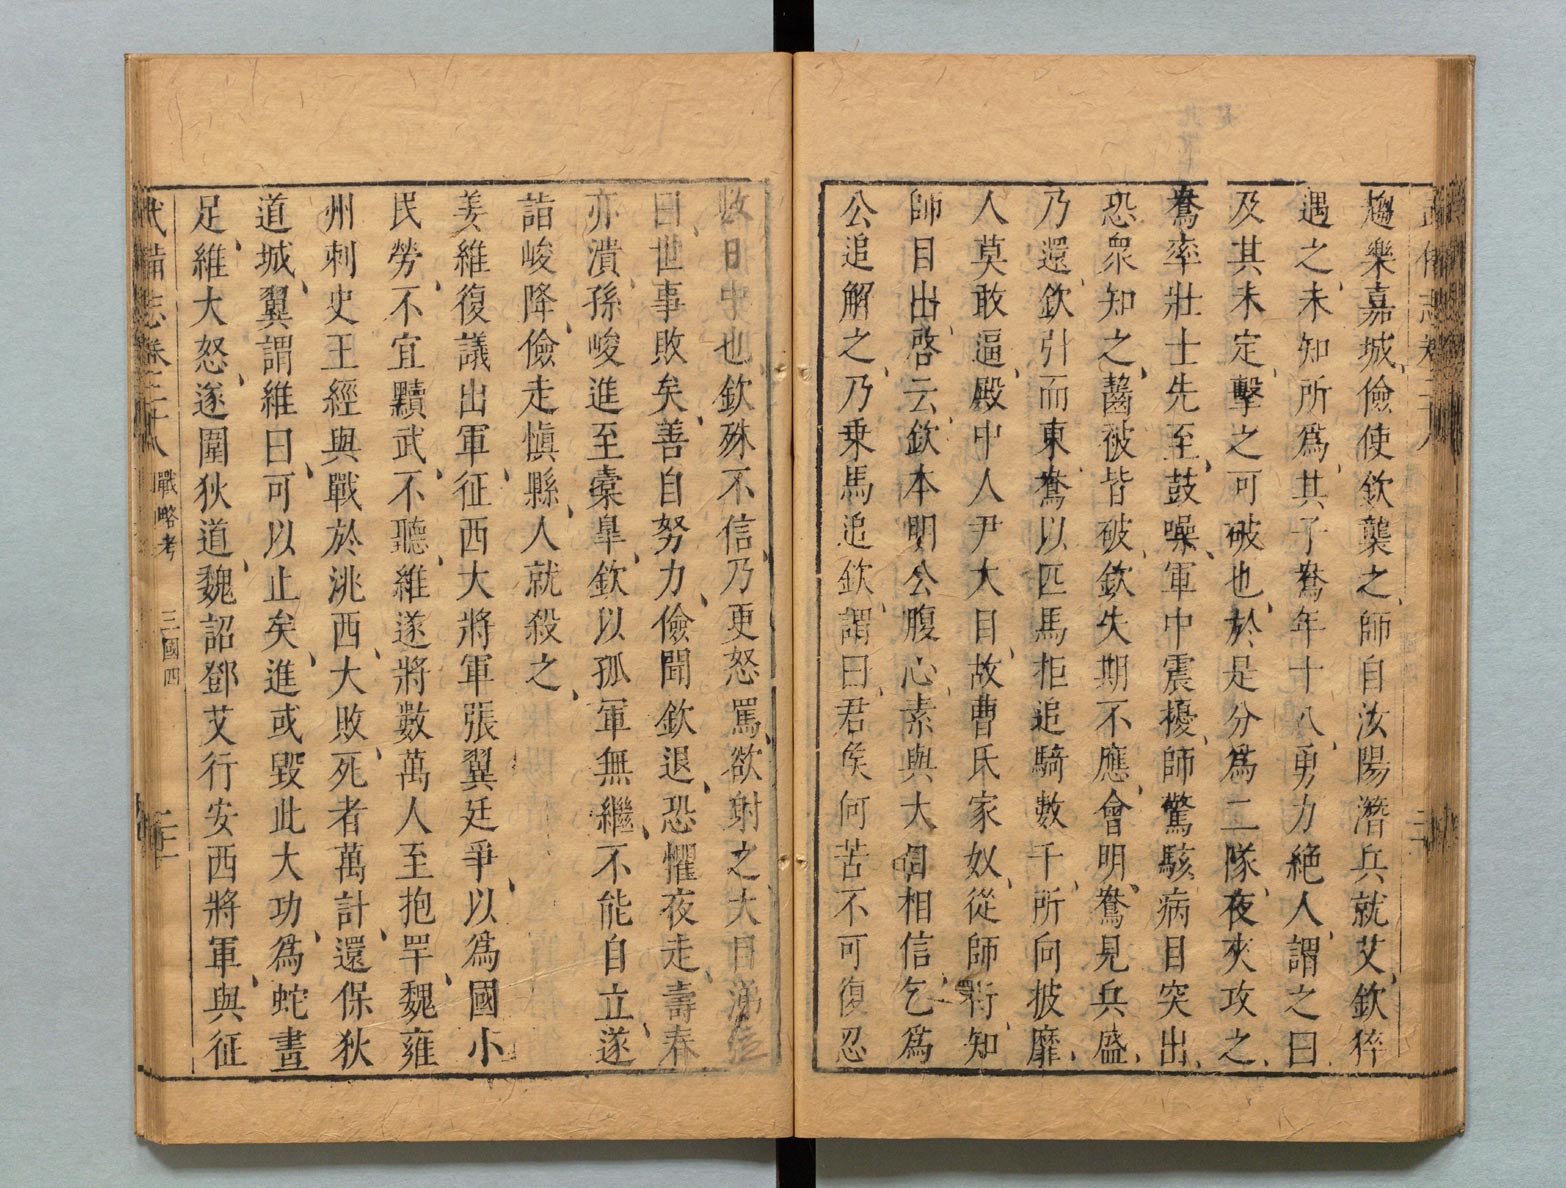 趨樂嘉城儉使欽襲之師自汝陽潛兵就艾欽猝
遇之未知所爲其子鴦年十八勇力絕人謂之曰
及其未定擊之可破也於是分爲二隊夜夾攻之
鴦率壯士先至鼓噪軍中震擾師驚駭病目突出
恐衆知之齧被皆破欽失期不應會明鴦見兵盛
乃還欽引而東鴦以匹馬拒追騎數千所向披靡
人莫敢逼殿中人尹大目故曹氏家奴從師行知
師目出啓云欽本明公腹心素與大目相信乞爲
公追解之乃乗馬追欽謂曰君矦何苦不可復忍
數日中也欽殊不信乃更怒罵欲射之大目涕泣
曰世事敗矣善自努力儉聞欽退恐懼夜走壽春
亦潰孫峻進至橐皐欽以孤軍無繼不能自立遂
詣峻降儉走愼縣人就殺之
姜維復議出軍征西大將軍張翼廷爭以爲國小
民勞不宜黷武不聽維遂將數萬人至抱罕魏雍
州刺史王經與戰於洮西大敗死者萬計還保狄
道城翼謂維曰可以止矣進或毀此大功爲蛇畫
足維大怒遂圍狄道魏詔鄧艾行安西將軍與征
武備志卷二十八 戰略考 三國四